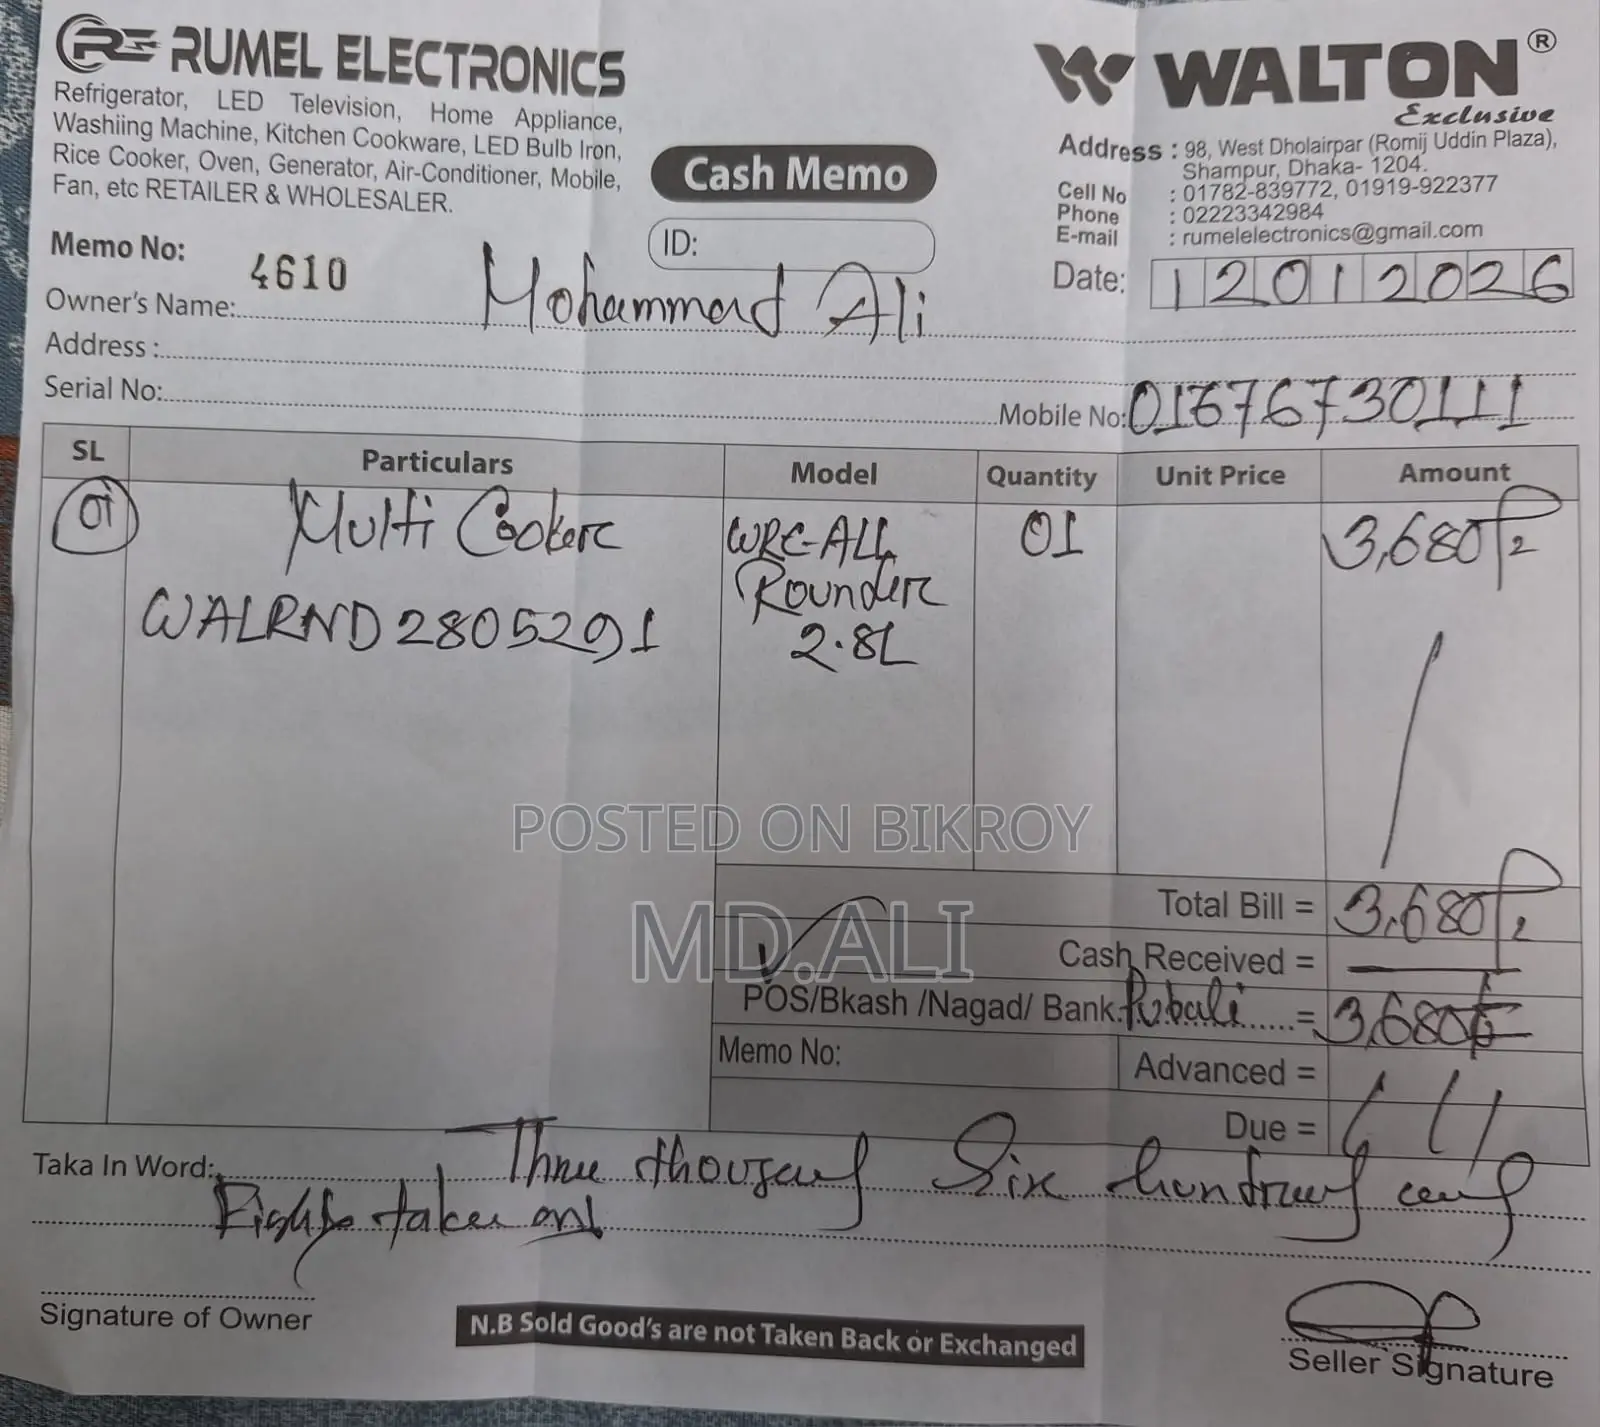 RE RUMEL ELECTRONICS
Refrigerator, LED Television, Home Appliance,
Washiing Machine, Kitchen Cookware, LED Bulb Iron,
Rice Cooker, Oven, Generator, Air-Conditioner, Mobile,
Fan, etc RETAILER & WHOLESALER.
Cash Memo
WALTON®
Exclusive
Address : 98, West Dholairpar (Romij Uddin Plaza),
Shampur, Dhaka- 1204.
Cell No : 01782-839772, 01919-922377
Phone : 02223342984
E-mail : rumelelectronics@gmail.com
Memo No: 4610
ID:
Date: 12012026
Owner's Name: Mohammad Ali
Address :
Serial No:
Mobile No: 01676730111
SL Particulars Model Quantity Unit Price Amount
01 Multi Cooker WRC-ALL 01 3,680/=
Rounder
WALRND2805291 2.8L
POSTED ON BIKROY
MD.ALI
Total Bill = 3,680/=
Cash Received =
POS/Bkash /Nagad/ Bank. Pubali = 3,680/=
Memo No: Advanced =
Due =
Taka In Word: Three thousand Six hundred and
Eighty taka only
Signature of Owner
N.B Sold Good's are not Taken Back or Exchanged
Seller Signature